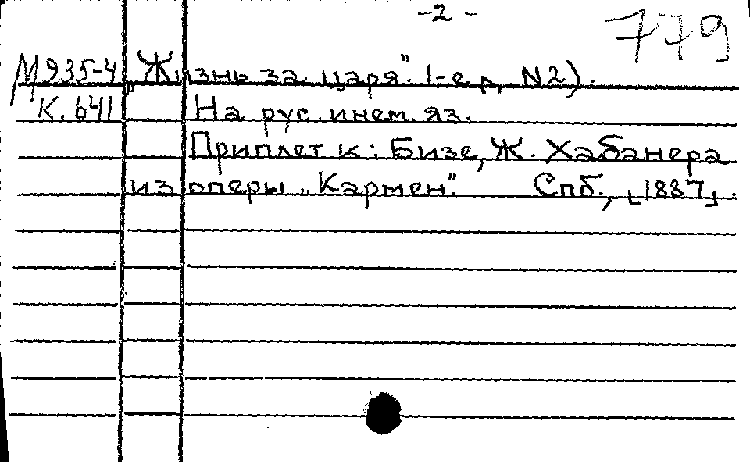 -2-
779
М935-4 „Жизнь за царя". 1-е д, N2).
К. 641 На рус. и нем. яз.
Приплет к: Бизе, Ж. Хабанера
из оперы „Кармен". Спб., [1887].